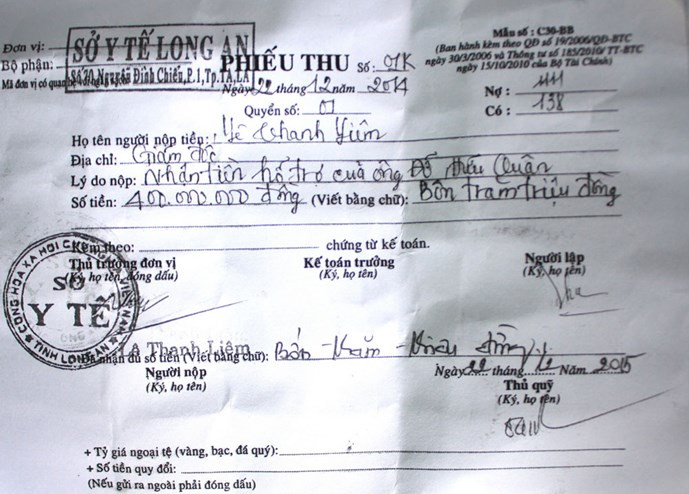 Mẫu số : C30-BB
(Ban hành kèm theo QĐ số 19/2006/QĐ-BTC
ngày 30/3/2006 và Thông tư số 185/2010/ TT-BTC
ngày 15/10/2010 của Bộ Tài Chính)
Đơn vị:
SỞ Y TẾ LONG AN
Bộ phận:
Số 70, Nguyễn Đình Chiểu, P.1, Tp.TA, LA
Mã đơn vị có quan hệ
PHIẾU THU Số: 01K
Ngày 22 tháng 12 năm 2014
Quyển số: 01
Nợ : 1111
Có : 138
Họ tên người nộp tiền: Lê Thanh Liêm
Địa chỉ: Giám đốc
Lý do nộp: Nhận tiền hổ trợ của ông Đỗ Hữu Quận
Số tiền: 400.000.000 đồng (Viết bằng chữ): Bốn trăm triệu đồng
Kèm theo: chứng từ kế toán.
Thủ trưởng đơn vị
(Ký, họ tên, đóng dấu)
Kế toán trưởng
(Ký, họ tên)
Người lập
(Ký, họ tên)
CỘNG HÒA XÃ HỘI CHỦ NGHĨA VIỆT NAM
SỞ
Y TẾ
TỈNH LONG AN
Lê Thanh Liêm
Đã nhận đủ số tiền (Viết bằng chữ): Bốn trăm triệu đồng
Ngày 22 tháng Năm 2015
Người nộp
(Ký, họ tên)
Thủ quỹ
(Ký, họ tên)
+ Tỷ giá ngoại tệ (vàng, bạc, đá quý):
+ Số tiền quy đổi:
(Nếu gửi ra ngoài phải đóng dấu)